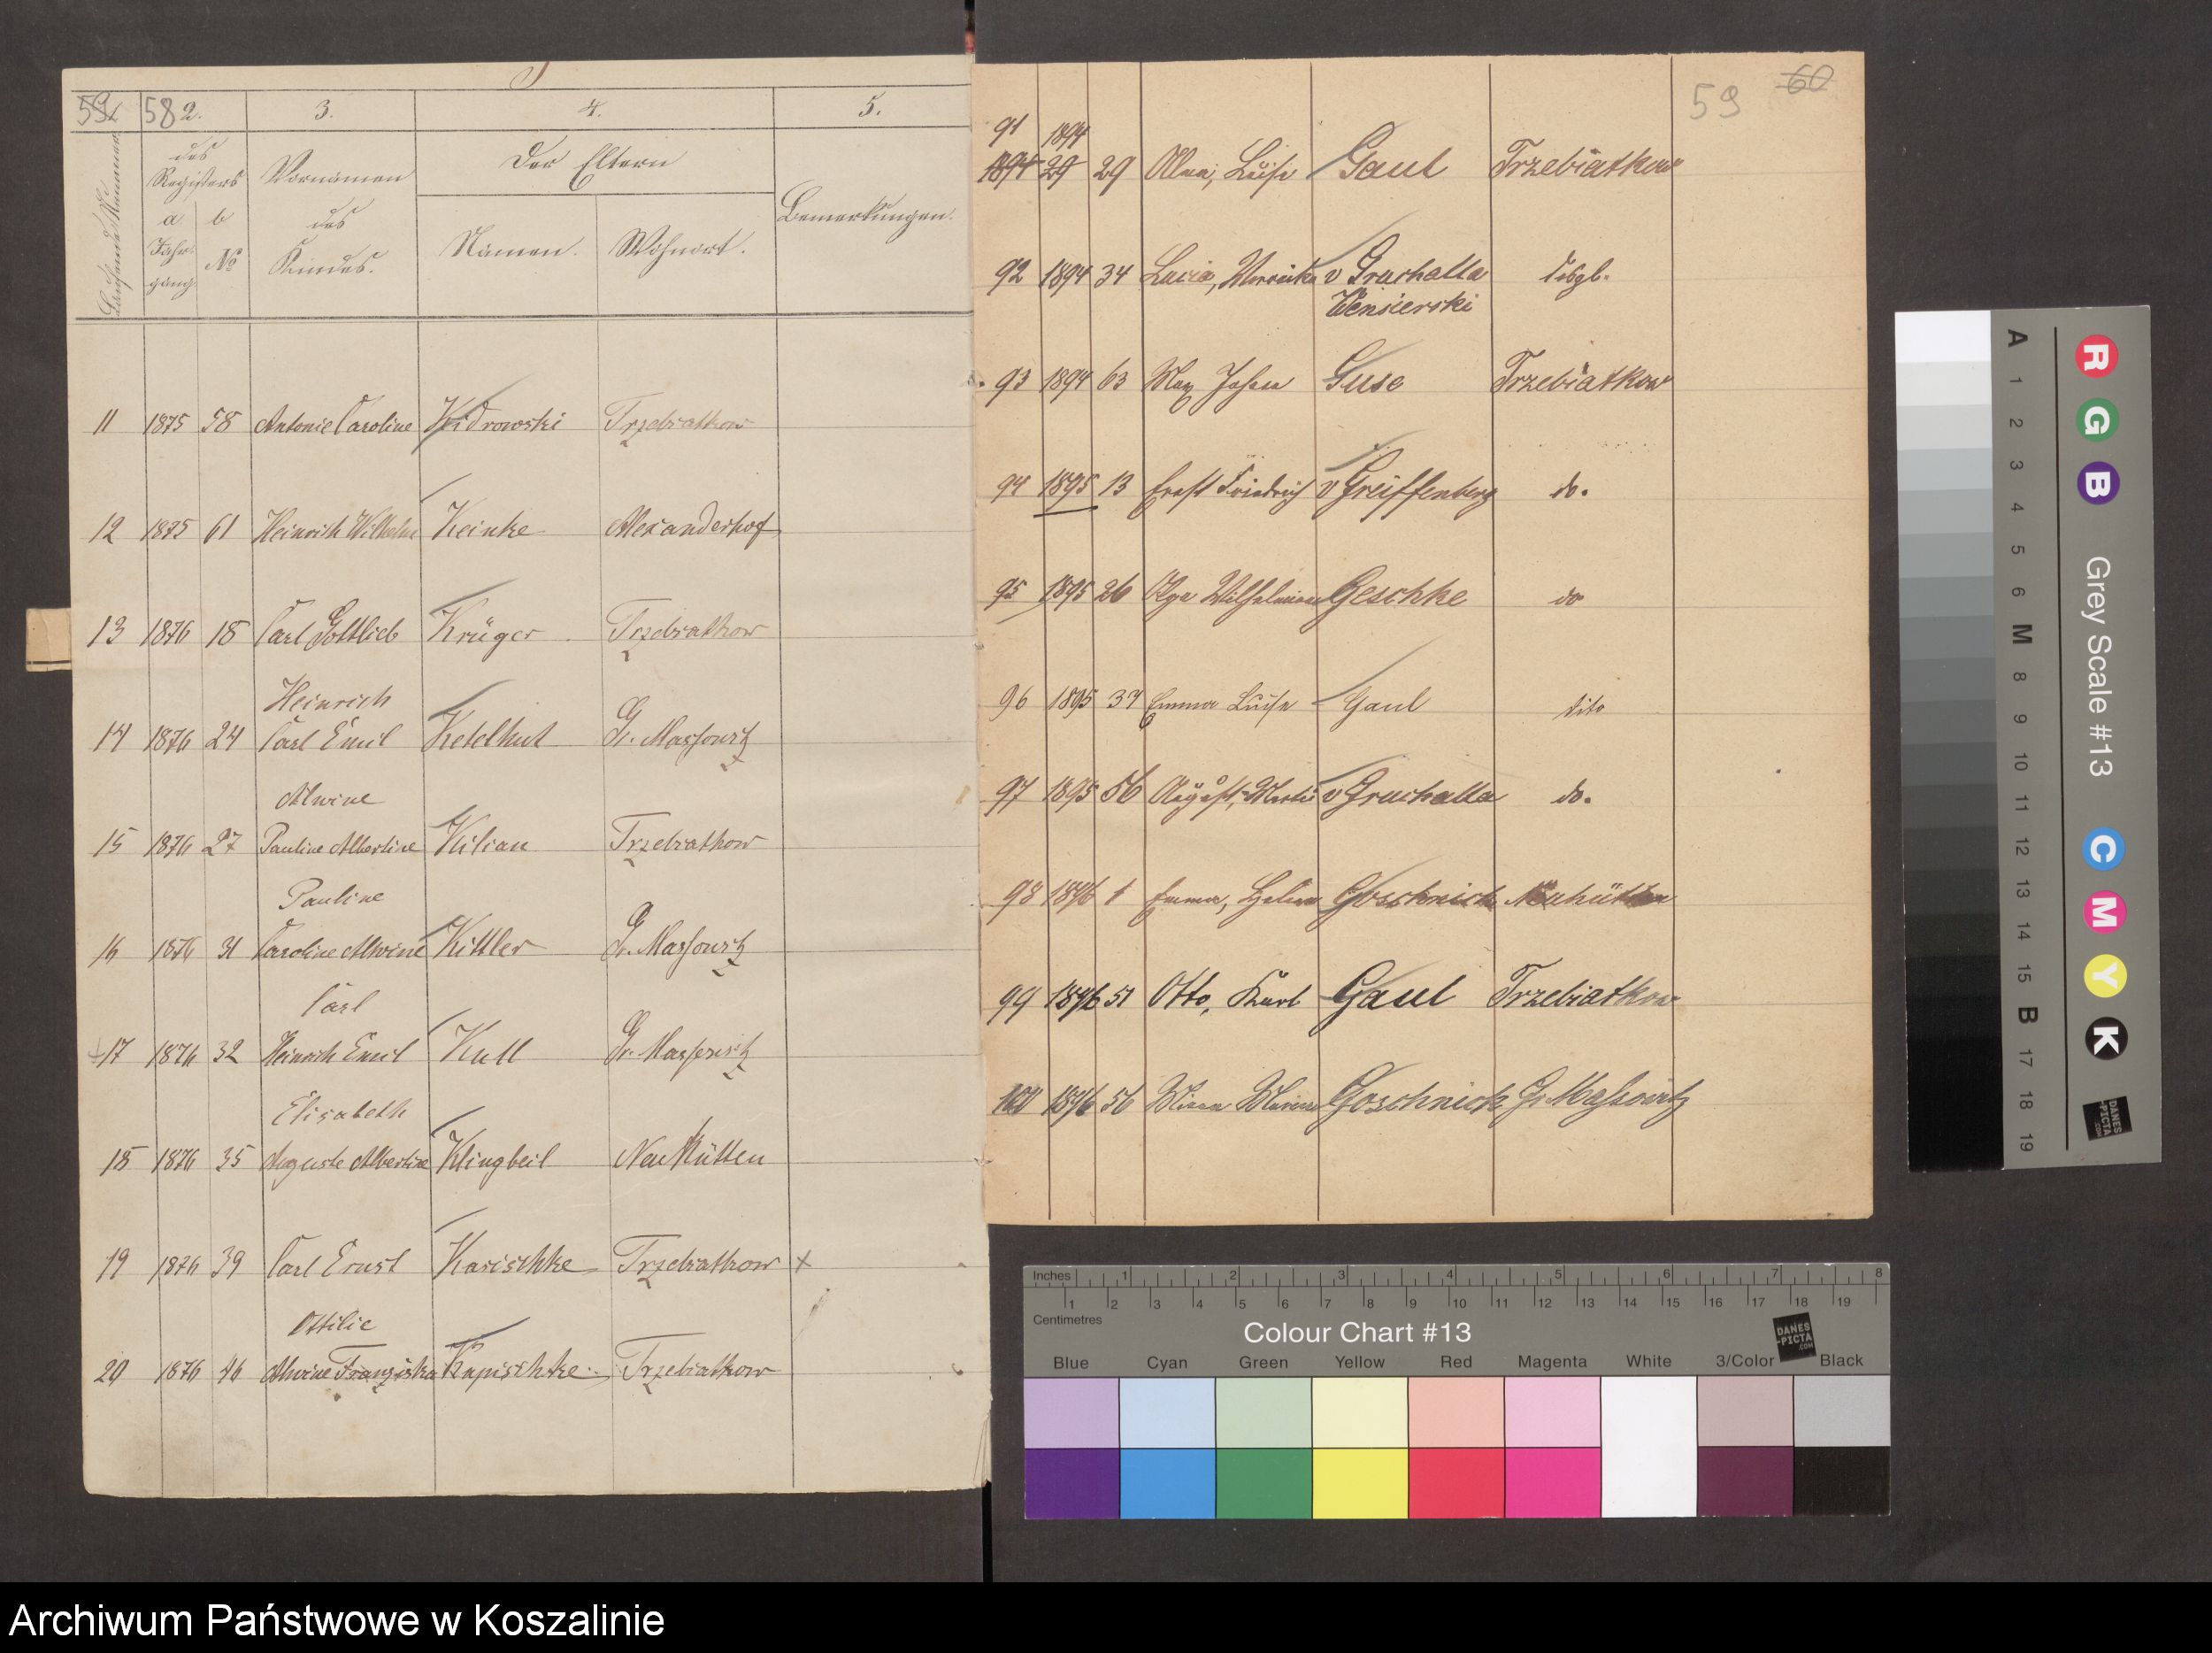 58 2. 3. 4. 5.
Laufende Nummer
des Registers
a b
Jahrgang No
Vornamen des Kindes.
Der Eltern
Namen. Wohnort.
Bemerkungen.
11 1875 58 Antonie Caroline Kidrowski Trzebiatkow
12 1875 61 Heinrich Wilhelm Keinke Alexanderhof
13 1876 18 Carl Gottlieb Krüger Trzebiatkow
Heinrich
14 1876 24 Carl Emil Ketelhut Gr. Massowitz
Alwine
15 1876 27 Pauline Albertine Kilian Trzebiatkow
Pauline
16 1876 31 Caroline Alwine Kittler Gr. Massowitz
Carl
17 1876 32 Heinrich Emil Kull Gr. Massowitz
Elisabeth
18 1876 35 Auguste Albertine Klingbeil Neu Hütten
19 1876 39 Carl Ernst Karischke Trzebiatkow x
Ottilie
20 1876 46 Alwine Franziska Kapischke Trzebiatkow
59 60
91 1894
1894 29 29 Luise Gaul Trzebiatkow
92 1894 34 Lucia, Veronika v Gruchalla desgl.
Wensierski
93 1894 63 Max Johann Guse Trzebiatkow
94 1895 13 Ernst Friedrich v Greiffenberg do.
95 1895 26 Olga Wilhelmine Geschke do
96 1895 37 Emma Luise Gaul dito
97 1895 56 August, v Gruchalla do.
98 1896 1 Emma, Helene Goschnick Neuhütten
99 1896 51 Otto, Karl Gaul Trzebiatkow
100 1896 56 Goschnick Gr Massowitz
A 1 2 3 4 5 6 M 8 9 10 11 12 13 14 15 B 17 18 19
R G B
Grey Scale #13
C M Y K
DANES
-PICTA
.COM
Inches 1 2 3 4 5 6 7 8
1 2 3 4 5 6 7 8 9 10 11 12 13 14 15 16 17 18 19
Centimetres
Colour Chart #13
DANES
-PICTA
.COM
Blue Cyan Green Yellow Red Magenta White 3/Color Black
Archiwum Państwowe w Koszalinie